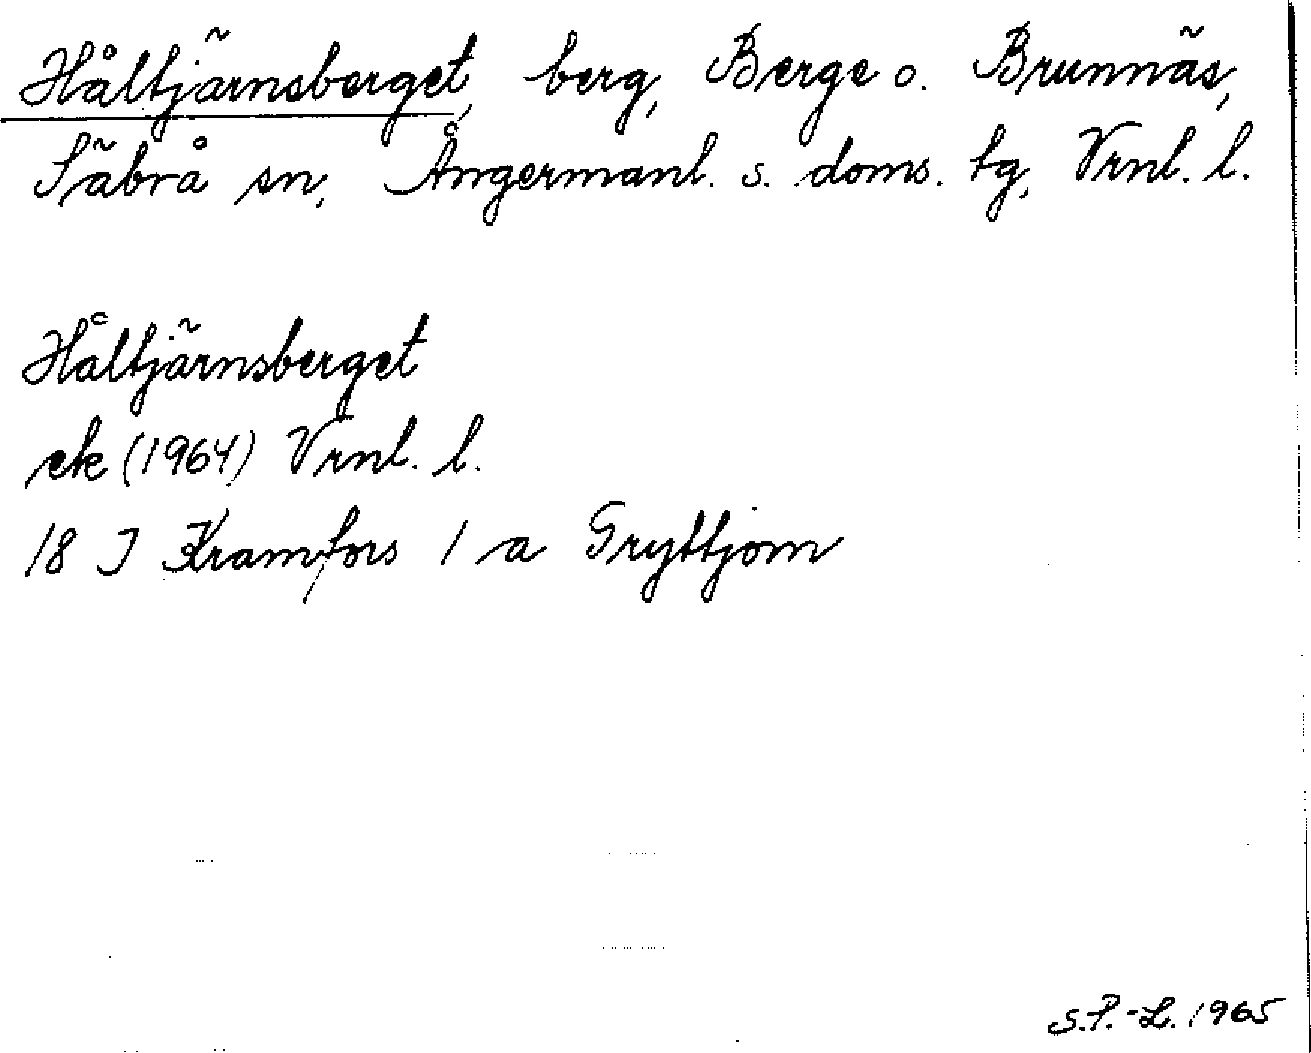 Håltjärnsberget, berg, Berge o. Brunnäs,
Säbrå sn, Ångermanl. s. doms. tg, Vrnl. l.
Håltjärnsberget
ek (1964) Vrnl. l.
18 I Kramfors 1 a Gryttjom
S.P.-L. 1965